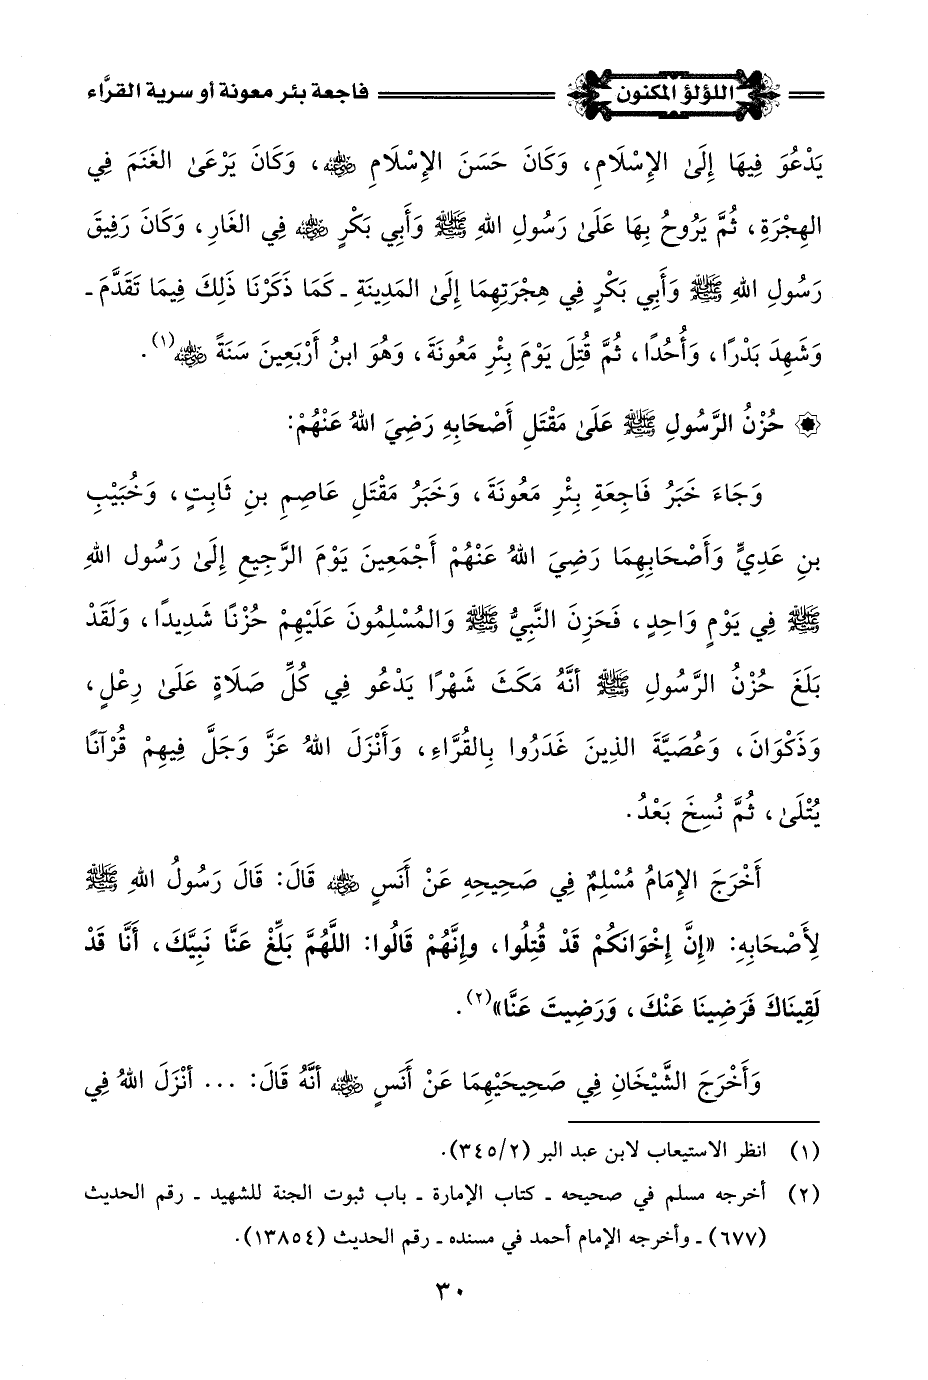 اللؤلؤ المكنون فاجعة بئر معونة أو سرية القرَّاء
يَدْعُوَ فِيهَا إِلَىٰ الإِسْلَامِ، وَكَانَ حَسَنَ الإِسْلَامِ ﵁، وَكَانَ يَرْعَىٰ الغَنَمَ فِي
الهِجْرَةِ، ثُمَّ يَرُوحُ بِهَا عَلَىٰ رَسُولِ اللهِ ﷺ وَأَبِي بَكْرٍ ﵁ فِي الغَارِ، وَكَانَ رَفِيقَ
رَسُولِ اللهِ ﷺ وَأَبِي بَكْرٍ فِي هِجْرَتِهِمَا إِلَىٰ المَدِينَةِ ـ كَمَا ذَكَرْنَا ذَلِكَ فِيمَا تَقَدَّمَ ـ
وَشَهِدَ بَدْرًا، وَأُحُدًا، ثُمَّ قُتِلَ يَوْمَ بِئْرِ مَعُونَةَ، وَهُوَ ابنُ أَرْبَعِينَ سَنَةً ﵁(١).
۞ حُزْنُ الرَّسُولِ ﷺ عَلَىٰ مَقْتَلِ أَصْحَابِهِ رَضِيَ اللهُ عَنْهُمْ:
وَجَاءَ خَبَرُ فَاجِعَةِ بِئْرِ مَعُونَةَ، وَخَبَرُ مَقْتَلِ عَاصِمِ بنِ ثَابِتٍ، وَخُبَيْبِ
بنِ عَدِيٍّ وَأَصْحَابِهِمَا رَضِيَ اللهُ عَنْهُمْ أَجْمَعِينَ يَوْمَ الرَّجِيعِ إِلَىٰ رَسُولِ اللهِ
ﷺ فِي يَوْمٍ وَاحِدٍ، فَحَزِنَ النَّبِيُّ ﷺ وَالمُسْلِمُونَ عَلَيْهِمْ حُزْنًا شَدِيدًا، وَلَقَدْ
بَلَغَ حُزْنُ الرَّسُولِ ﷺ أَنَّهُ مَكَثَ شَهْرًا يَدْعُو فِي كُلِّ صَلَاةٍ عَلَىٰ رِعْلٍ،
وَذَكْوَانَ، وَعُصَيَّةَ الذِينَ غَدَرُوا بِالقُرَّاءِ، وَأَنْزَلَ اللهُ عَزَّ وَجَلَّ فِيهِمْ قُرْآنًا
يُتْلَىٰ، ثُمَّ نُسِخَ بَعْدُ.
أَخْرَجَ الإِمَامُ مُسْلِمٌ فِي صَحِيحِهِ عَنْ أَنَسٍ ﵁ قَالَ: قَالَ رَسُولُ اللهِ ﷺ
لِأَصْحَابِهِ: «إِنَّ إِخْوَانَكُمْ قَدْ قُتِلُوا، وإِنَّهُمْ قَالُوا: اللَّهُمَّ بَلِّغْ عَنَّا نَبِيَّكَ، أَنَّا قَدْ
لَقِينَاكَ فَرَضِينَا عَنْكَ، وَرَضِيتَ عَنَّا»(٢).
وَأَخْرَجَ الشَّيْخَانِ فِي صَحِيحَيْهِمَا عَنْ أَنَسٍ ﵁ أَنَّهُ قَالَ: ... أَنْزَلَ اللهُ فِي
(١) انظر الاستيعاب لابن عبد البر (٣٤٥/٢).
(٢) أخرجه مسلم في صحيحه ـ كتاب الإمارة ـ باب ثبوت الجنة للشهيد ـ رقم الحديث
(٦٧٧) ـ وأخرجه الإمام أحمد في مسنده ـ رقم الحديث (١٣٨٥٤).
٣٠